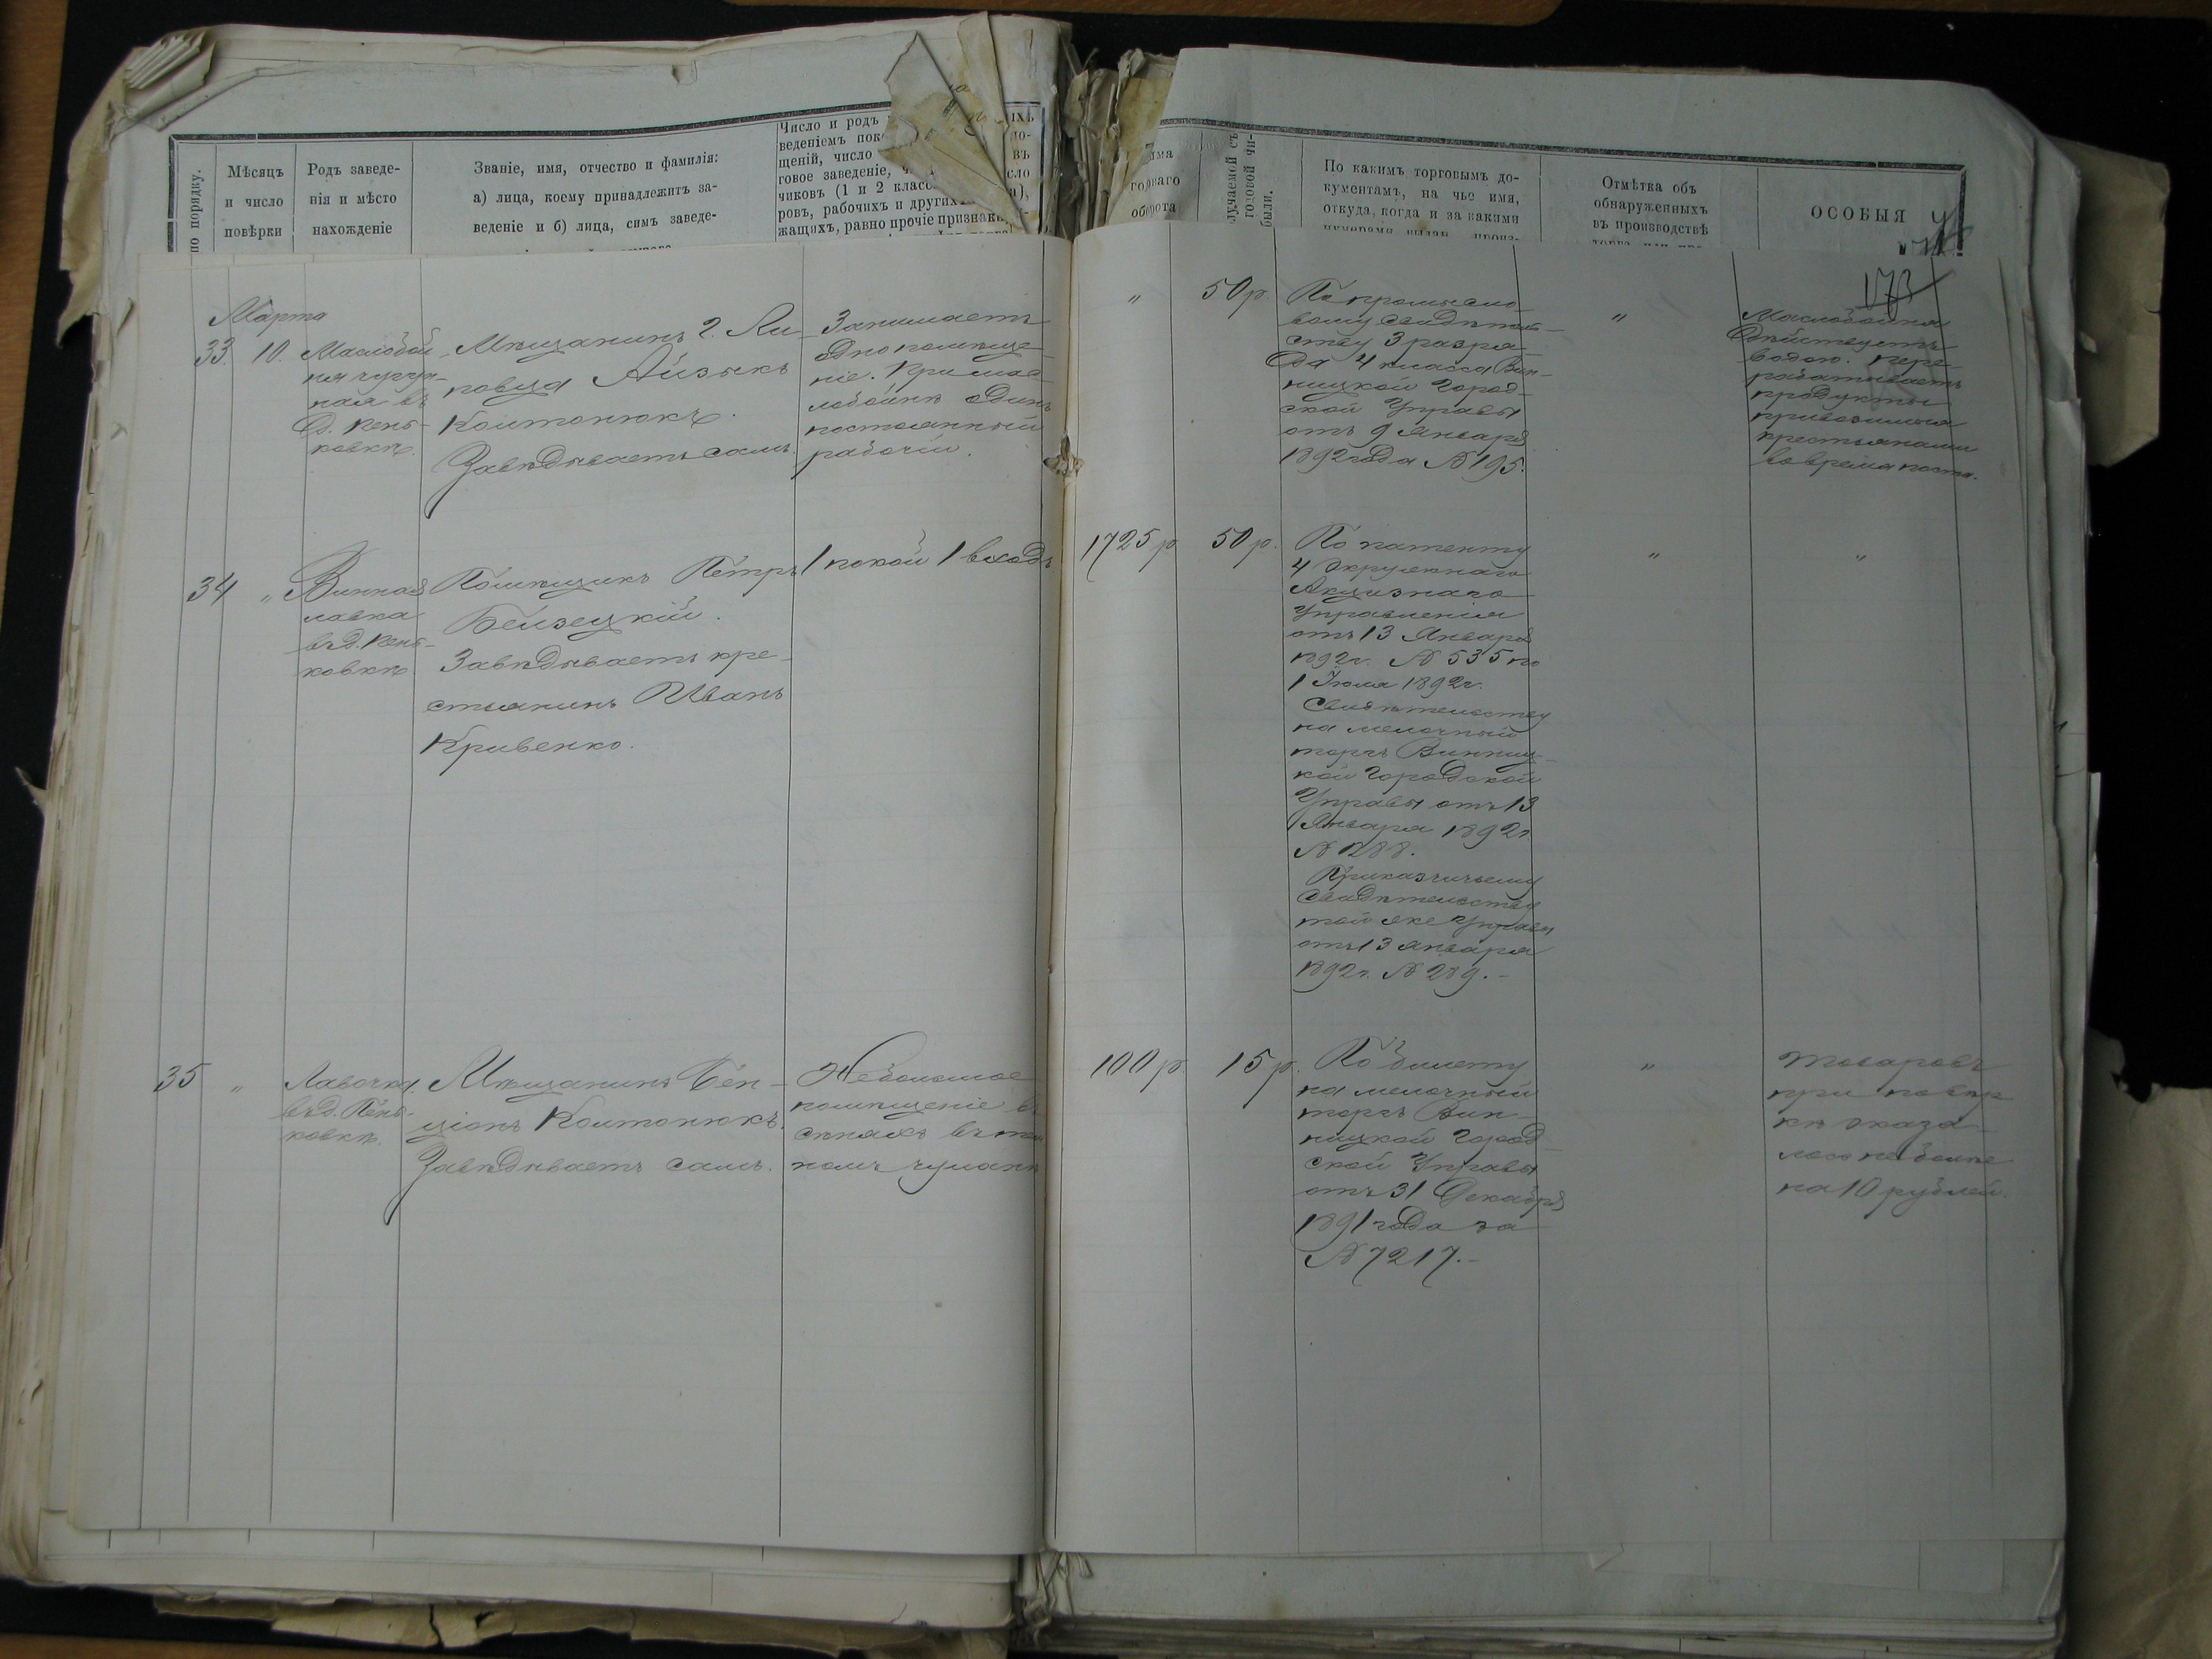 по порядку.
Мѣсяцъ
и число
повѣрки
Родъ заведе-
нія и мѣсто
нахожденіе
Званіе, имя, отчество и фамилія:
а) лица, коему принадлежитъ за-
веденіе и б) лица, симъ заведе-
Число и родъ
веденіемъ
щеній, число
говое заведеніе,
чиковъ (1 и 2
ровъ, рабочихъ и другихъ
жащихъ, равно прочіе
оборота
годовой чи-
были.
По какимъ торговымъ до-
кументамъ, на чье имя,
откуда, когда и за какими
Отмѣтка объ
обнаруженныхъ
въ производствѣ
ОСОБЫЯ
173
Марта
33 10. Маслобой
ня чугун-
ная въ
д. Пень-
ковкѣ.
Мѣщанинъ г. Ли-
повца Айзыкъ
Колтонюкъ.
Завѣдываетъ самъ.
Занимаетъ
одно помѣще-
ніе. При мас-
лобойнѣ одинъ
постоянный
рабочій.
" 50 р.
По промысло-
вому свидѣтель-
ству 3 разря-
да 4 класса Вин-
ницкой Город-
ской Управы
отъ 9 Января
1892 года № 195.
"
Маслобойня
дѣйствуетъ
водою. Пере-
рабатываетъ
продукты
привозимыя
крестьянами
во время поста.
34 " Винная
лавка
въ д. Пень-
ковкѣ
Помѣщикъ Петръ
Бейзецкій.
Завѣдываетъ кре-
стьянинъ Иванъ
Кривенко.
1 покой 1 входъ
1725 р. 50 р.
По патенту
4 Окружнаго
Акцизнаго
Управленія
отъ 13 Января
1892 г. № 535 по
1 Іюля 1892 г.
Свидѣтельству
на мелочный
торгъ Винниц-
кой Городской
Управы отъ 13
Января 1892 г.
№ 288.
Приказчичьему
свидѣтельству
той же Управы
отъ 13 Января
1892 г. № 289.-
"
"
35 " Лавочка
въ д. Пень-
ковкѣ.
Мѣщанинъ Бен-
ціонъ Колтонюкъ.
Завѣдываетъ самъ.
Небольшое
помѣщеніе въ
сѣняхъ въ
чуланѣ
100 р. 15 р.
По билету
на мелочный
торгъ Вин-
ницкой Город-
ской Управы
отъ 31 Декабря
1891 года за
№ 7217.-
"
Товаровъ
при повѣр
кѣ оказа-
лось не болѣе
на 10 рублей.